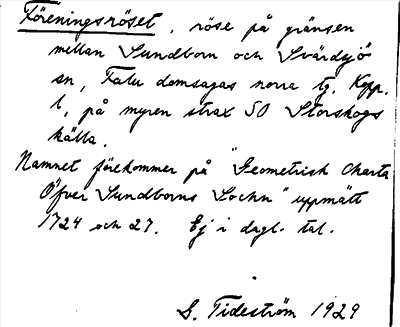 Föreningsröset, röse på gränsen
mellan Sundborn och Svärdsjö
sn, Falu domsagas norra tg. Kopp.
l, på myren strax SO Storskogs
källa.
Namnet förekommer på "Geometrisk Charta
Öfver Sundborns Sochn" uppmätt
1724 och 27. Ej i dagl. tal.
G. Tideström 1929